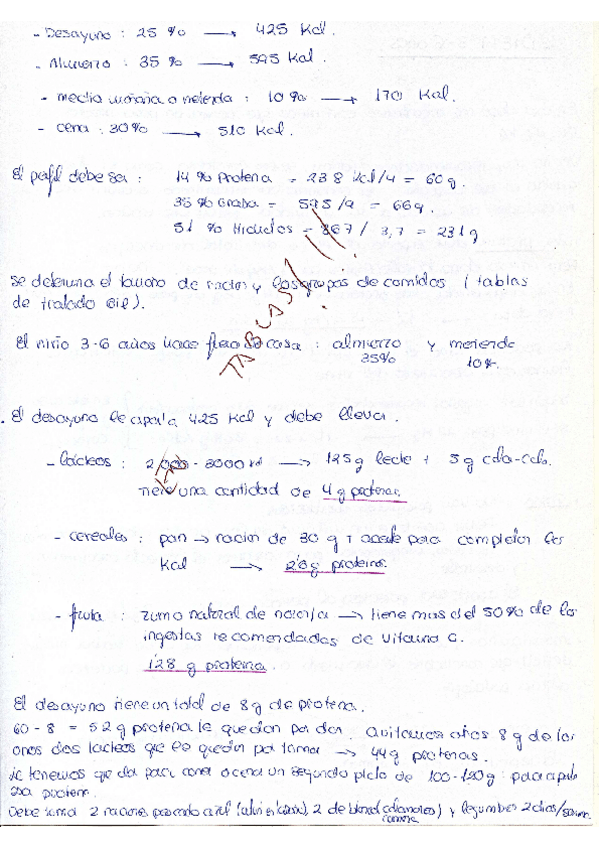 - Desayuno : 25 % → 425 Kcl.
- Almuerzo : 35 % → 595 Kal.
- media mañana o merienda : 10 % → 170 Kal.
- cena : 30% → 510 Kcl.
El perfil debe ser : 14 % Proteina = 238 Kcl/4 = 60 g.
35 % Grasa = 595 /9 = 66 g.
51 % Hidratos = 867 / 3,7 = 231 g
se determina el tamaño de racion y los grupos de comidas ( tablas
de tratado
TABLAS!!!
El niño 3-6 años hace fuera de casa : almuerzo y merienda
35% 10%
El desayuno le aporta 425 Kcl y debe llevar.
- Lácteos : → 125 g leche + 5 g cola-cao.
tiene una cantidad de 4 g proteinas.
- cereales : pan → racion de 30 g + aceite para completar las
Kcal → g proteina.
- fruta : zumo natural de naranja → tiene mas del 50% de las
ingestas recomendadas de vitamina C.
1'28 g proteina.
El desayuno tiene un total de 8 g de proteina.
60 - 8 = 52 g proteina le quedan por dar. Quitamos otros 8 g de los
otros dos lacteos que le quedan por tomar → 44 g proteinas.
le tenemos que dar para comer o cenar un segundo plato de 100 - 120 g para
proteina.
Debe tomar 2 raciones pescado azul, 2 de blanco y legumbres 2 dias/